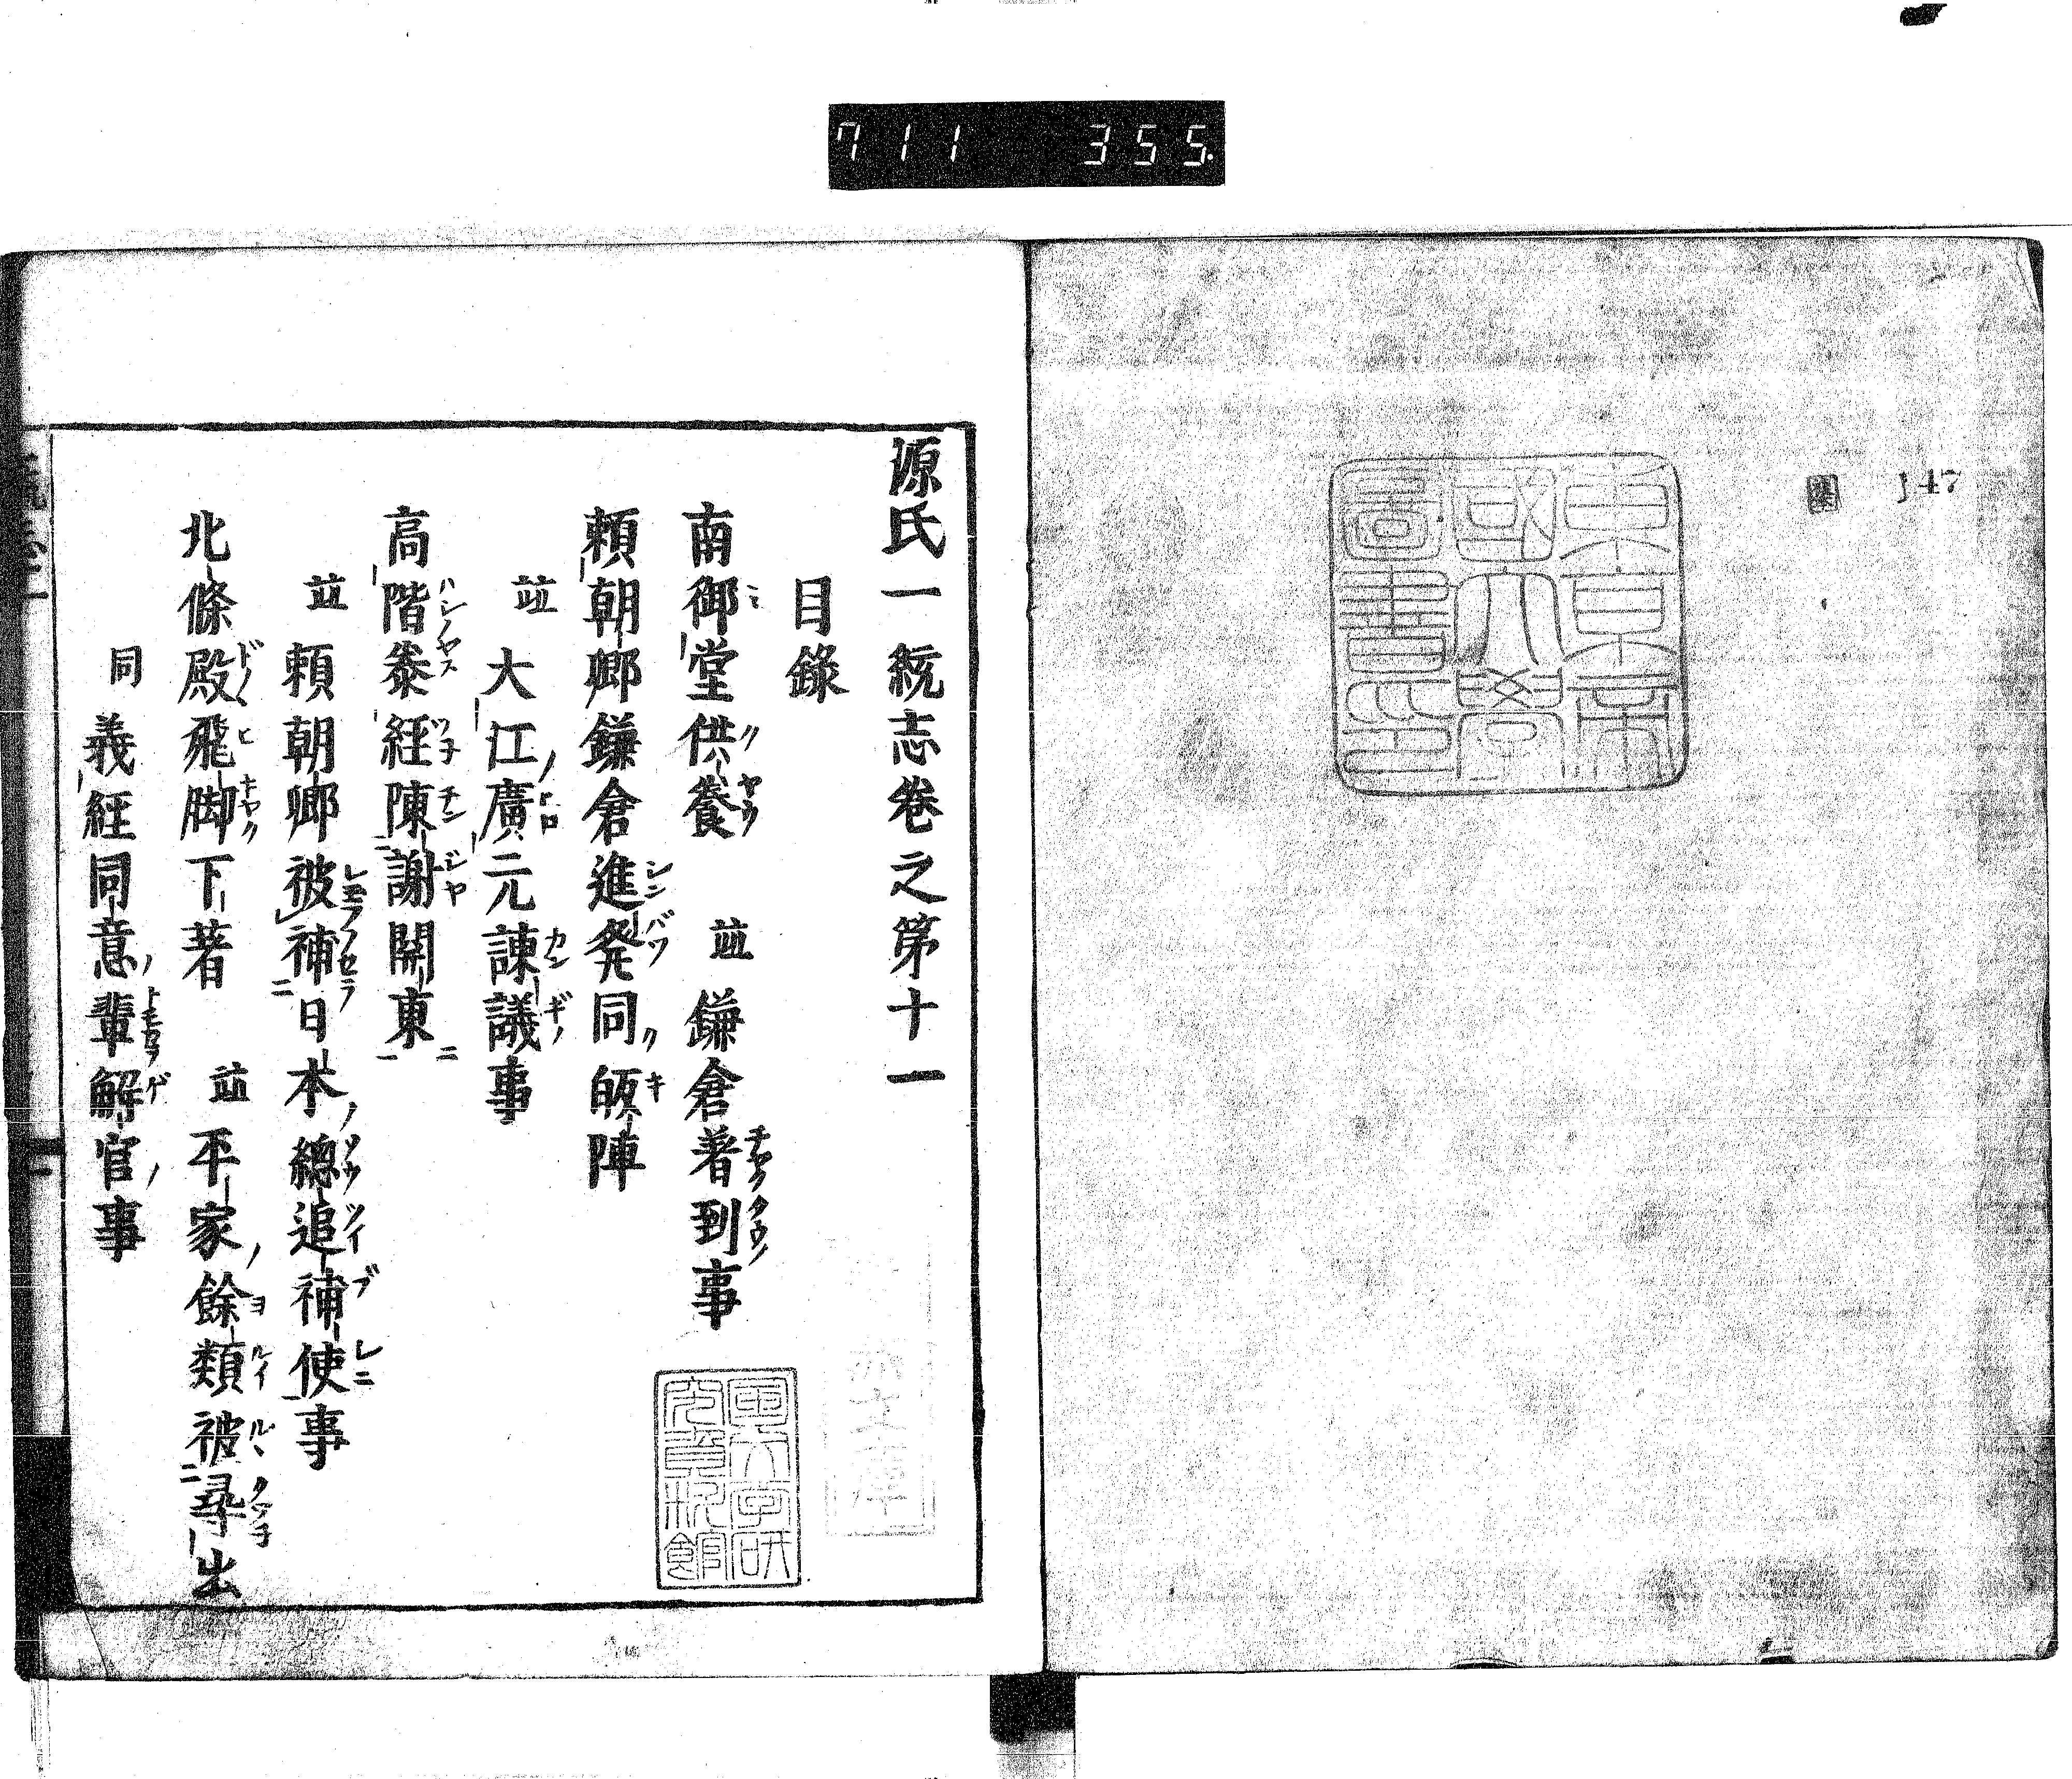 711 355
147
東京帝國大學圖書印
源氏一統志巻之第十一
目錄
南御堂供養 並 鎌倉著到事
頼朝卿鎌倉進発同皈陣
並 大江廣元諌議事
高階泰経陳謝関東
並 頼朝卿被補日本總追補使事
北條殿飛脚下著 並 平家餘類被尋出
同 義経同意輩解官事